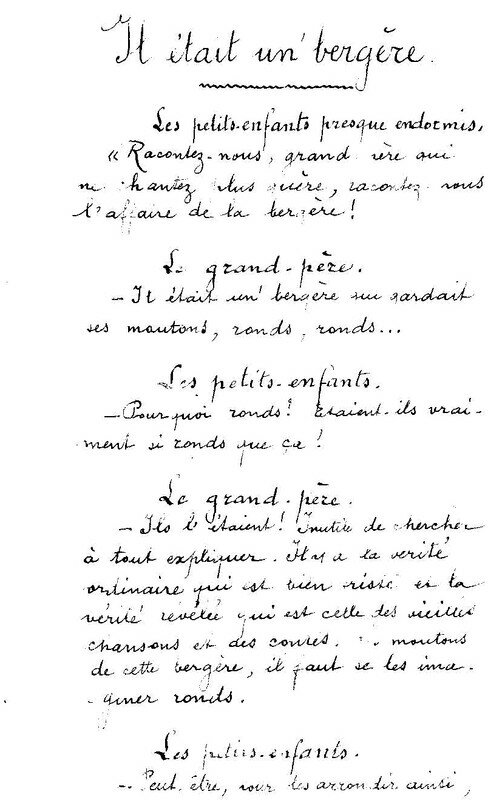 Il était un' bergère.
Les petits-enfants presque endormis.
« Racontez-nous, grand père qui
ne chantez plus guère, racontez nous
l'affaire de la bergère !
Le grand-père.
— Il était un' bergère qui gardait
ses moutons, ronds, ronds...
Les petits-enfants.
— Pourquoi ronds ! Etaient-ils vrai-
ment si ronds que ça !
Le grand-père.
— Ils l'étaient ! Inutile de chercher
à tout expliquer. Il y a la vérité
ordinaire qui est bien triste et la
vérité révélée qui est celle des vieilles
chansons et des contes. moutons
de cette bergère, il faut se les ima-
giner ronds.
Les petits-enfants.
— Peut-être, pour les arrondir ainsi,